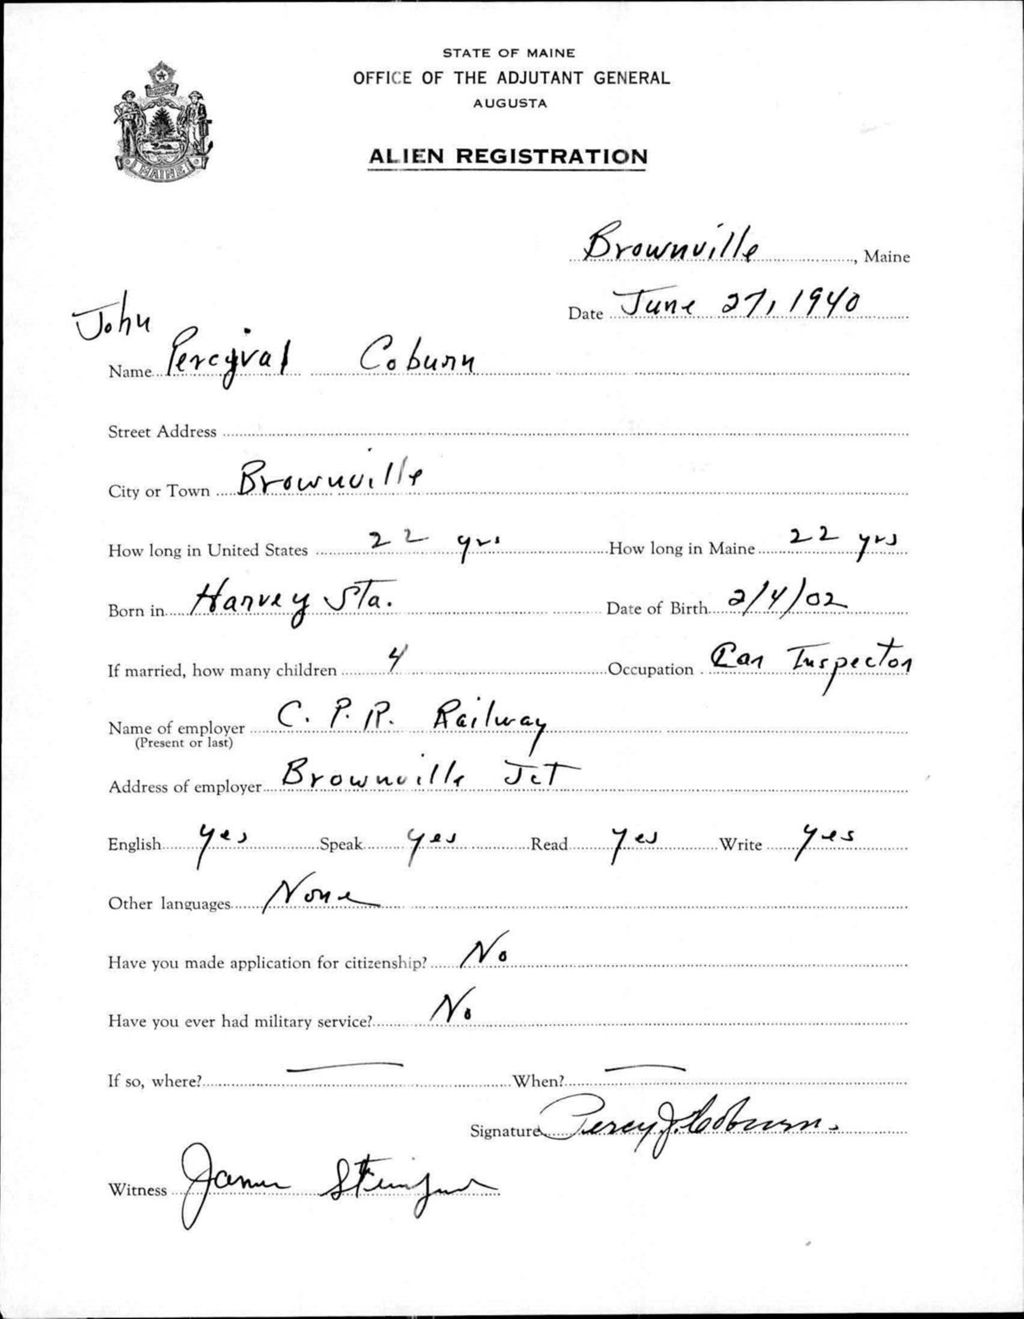 STATE OF MAINE
OFFICE OF THE ADJUTANT GENERAL
AUGUSTA
ALIEN REGISTRATION
MAINE
Brownville, Maine
Date June 27, 1940
John
Name Percyval Coburn
Street Address
City or Town Brownville
How long in United States 22 yrs How long in Maine 22 yrs
Born in Harvey Sta. Date of Birth 2/4/02
If married, how many children 4 Occupation Car Inspector
Name of employer C. P. R. Railway
(Present or last)
Address of employer Brownville Jct
English yes Speak yes Read yes Write yes
Other languages None
Have you made application for citizenship? No
Have you ever had military service? No
If so, where? When?
Signature Percy J. Coburn.
Witness James